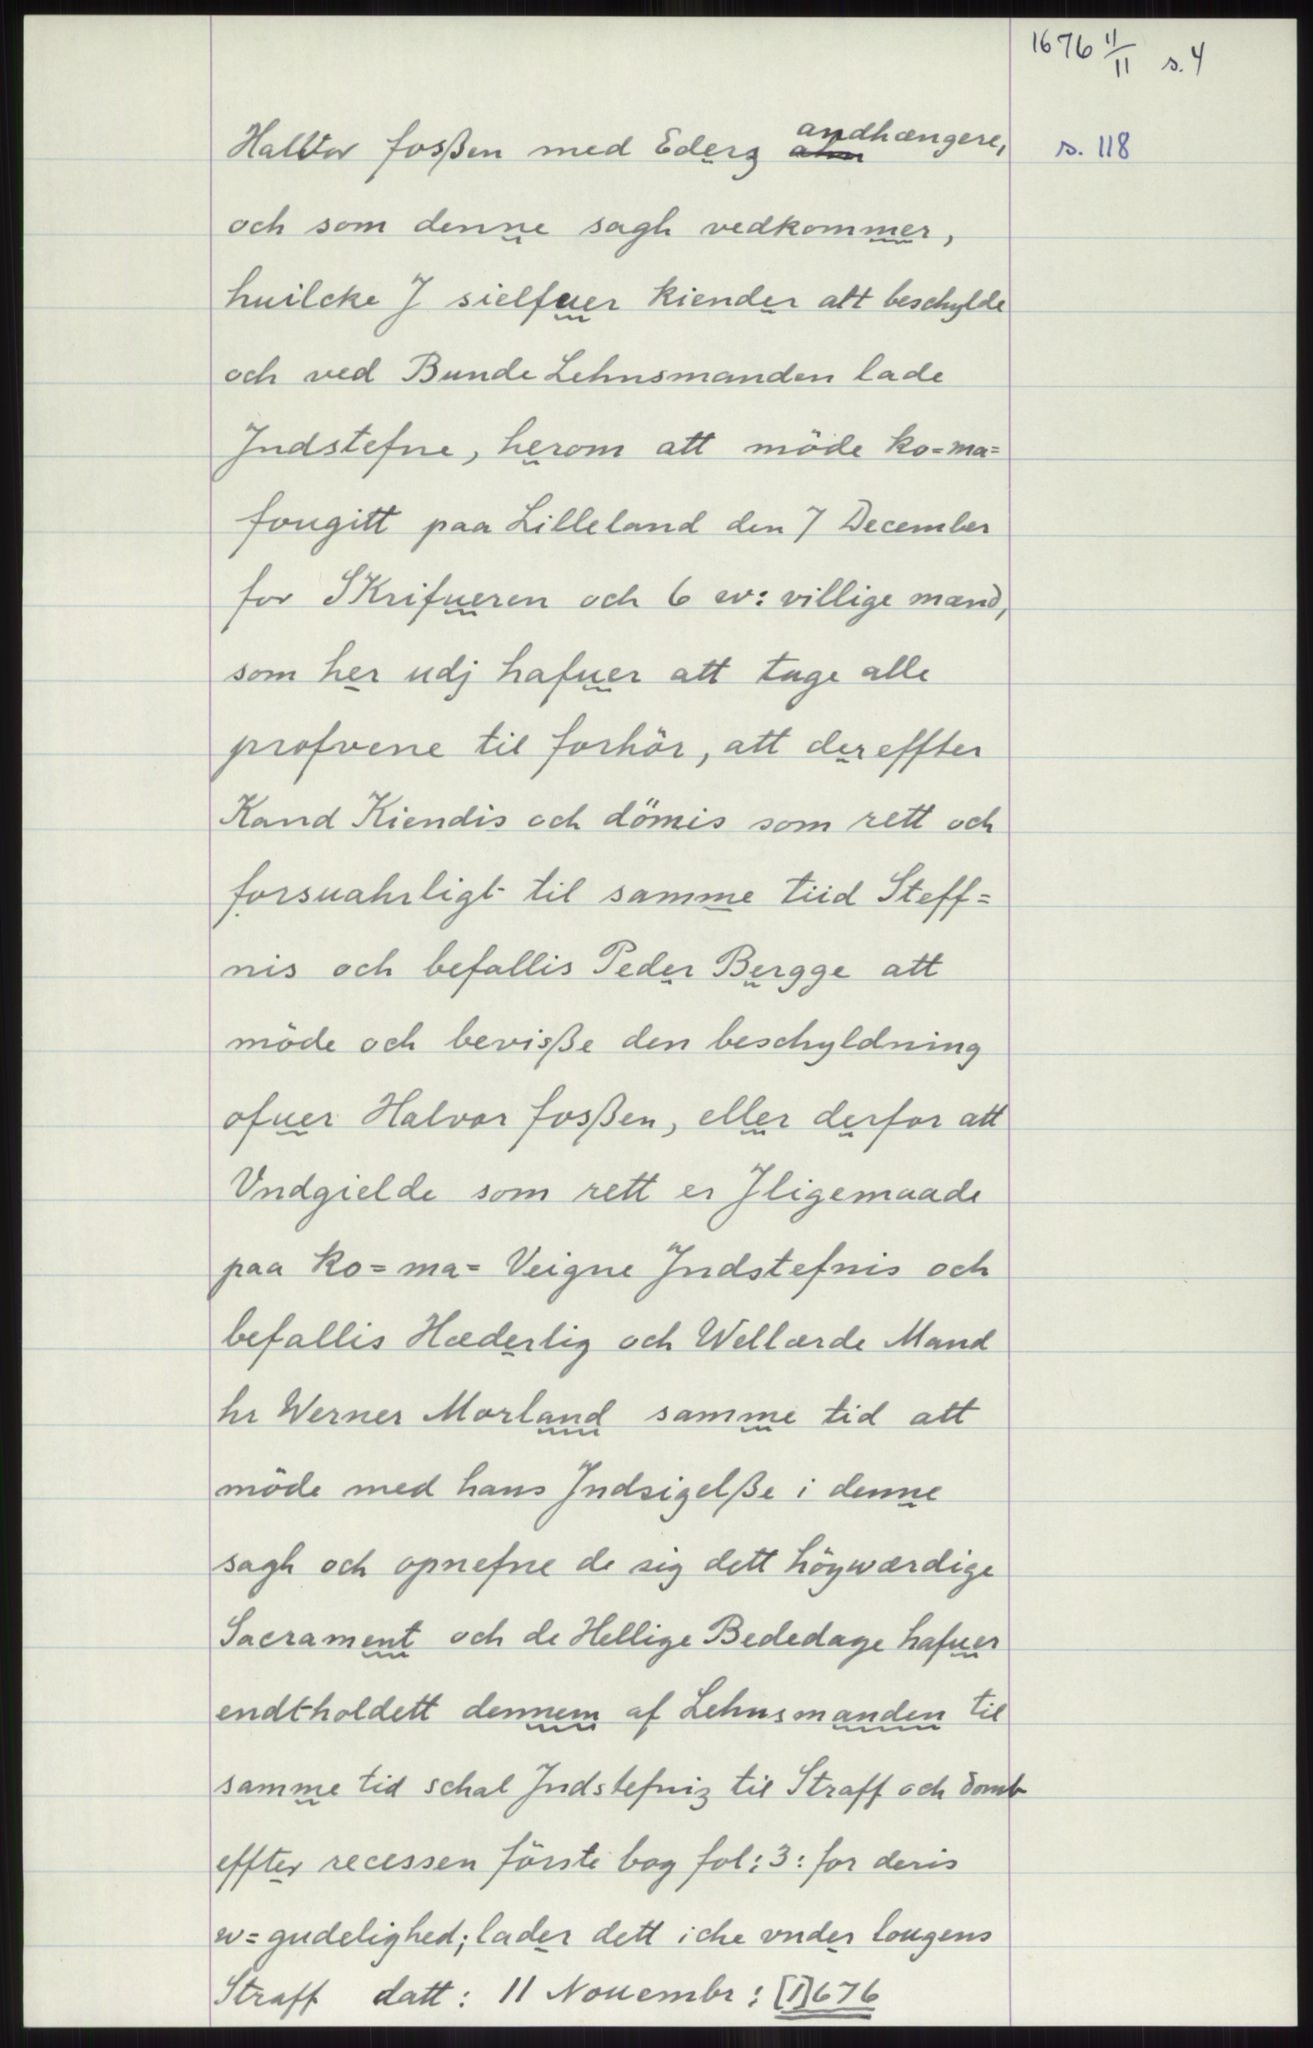 1676 11/11 s. 4
s. 118
Halvor fosßen med Eders ahn andhængere,
och som denne sagh vedkommer,
huilcke J sielfuer kiender att beschylde
och ved Bunde Lehnsmanden lade
Jndstefne, herom att möde ko=ma=
fougitt paa Lilleland den 7 December
for SKrifueren och 6 w: villige mænd,
som her udj hafuer att tage alle
profvene til forhör, att der effter
Kand Kiendis och dömis som rett och
forsuahrligt til samme tiid Steff=
nis och befallis Peder Bergge att
möde och bevisße den beschyldning
ofuer Halvor fosßen, eller derfor att
Vndgielde som rett er Jligemaade
paa ko=ma= Veigne Jndstefnis och
befallis Hæderlig och Wellærde Mand
hr Werner Morland samme tid att
möde med hans Jndsigelße i denne
sagh och opnefne de sig dett höywærdige
Sacrament och de Hellige Bededage hafuer
endtholdett dennem af Lehnsmanden til
samme tid schal Jndstefniz til Straff och domb
effter recessen förste bog fol: 3: for deris
w=gudelighed; lader dett iche vnder lougens
Straff datt: 11 Nouembr: [1]676